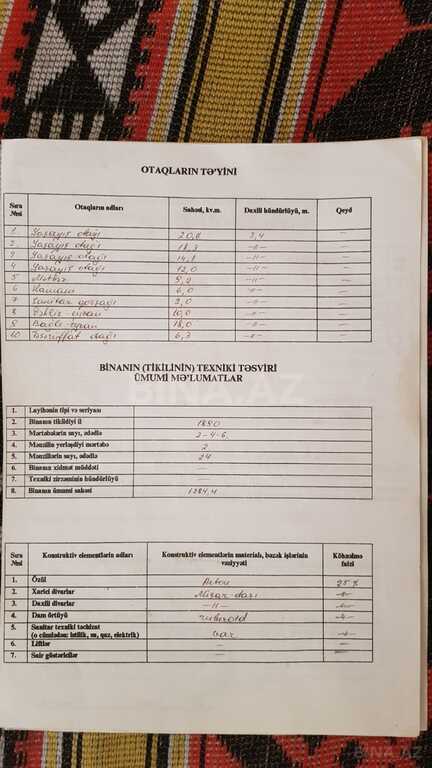 OTAQLARIN TƏ'YİNİ
Sıra №si Otaqların adları Sahəsi, kv.m. Daxili hündürlüyü, m. Qeyd
1 Yaşayış otağı 20,8 3,4 —
2 Yaşayış otağı 18,3 -"- —
3 Yaşayış otağı 14,1 -"- —
4 Yaşayış otağı 12,0 -"- —
5 Mətbəx 9,2 -"- —
6 Hamam 6,0 -"- —
7 Sanitar qovşağı 2,0 -"- —
8 10,0 -"- —
9 18,0 -"- —
10 Təsərrüfat otağı 6,3 -"- —
BİNANIN (TİKİLİNİN) TEXNİKİ TƏSVİRİ
ÜMUMİ MƏ'LUMATLAR
BINA.AZ
1. Layihənin tipi və seriyası
2. Binanın tikildiyi il 1880
3. Mərtəbələrin sayı, ədədlə 2-4-6
4. Mənzilin yerləşdiyi mərtəbə 2
5. Mənzillərin sayı, ədədlə 24
6. Binanın xidmət müddəti —
7. Texniki zirzəminin hündürlüyü —
8. Binanın ümumi sahəsi 1284,4
Sıra №si Konstruktiv elementlərin adları Konstruktiv elementlərin materialı, bəzək işlərinin vəziyyəti Köhnəlmə faizi
1. Özül Beton 25%
2. Xarici divarlar Mişar daşı -"-
3. Daxili divarlar -"- -"-
4. Dam örtüyü ruberoid -"-
5. Sanitar texniki təchizat
(o cümlədən: istilik, su, qaz, elektrik) var -"-
6. Liftlər — —
7. Sair göstəricilər — —
BINA.AZ